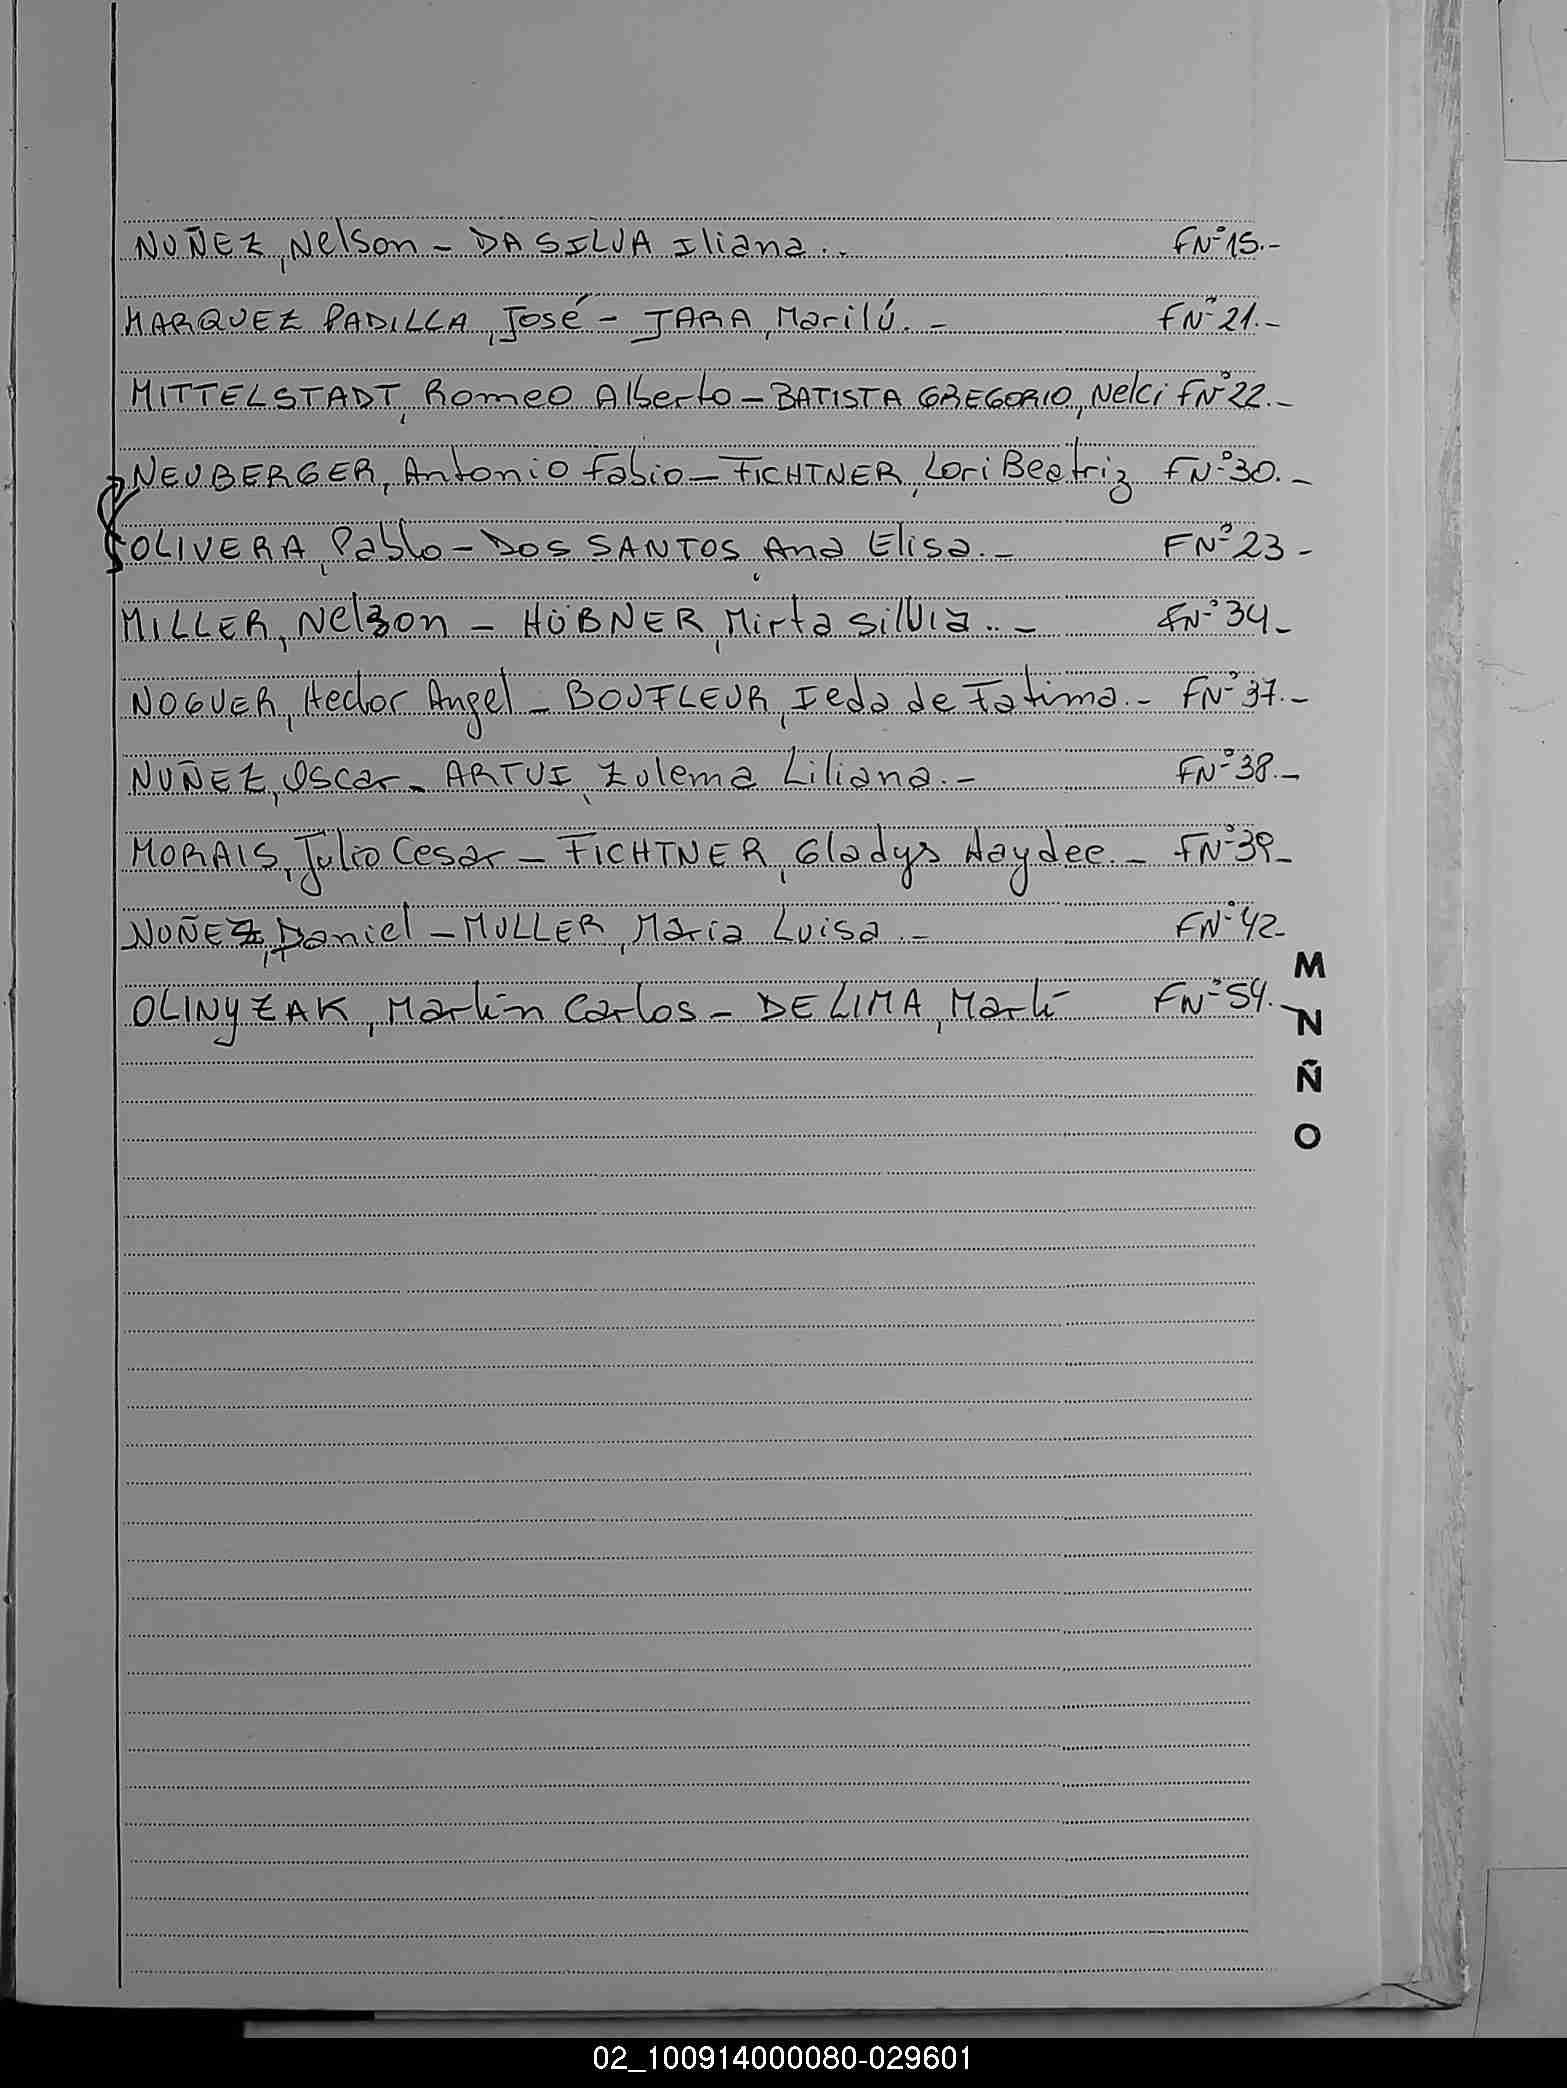 NUÑEZ, Nelson - DA SILVA Iliana.. FNº15.-
MARQUEZ PADILLA, José - JARA, Marilú.- FNº21.-
MITTELSTADT, Romeo Alberto - BATISTA GREGORIO, Nelci FNº22.-
NEUBERGER, Antonio Fabio - FICHTNER, Lori Beatriz FNº30.-
OLIVERA, Pablo - DOS SANTOS, Ana Elisa.- FNº23-
MILLER, Nelson - HÜBNER, Mirta Silvia..- FNº34-
NOGUER, Hector Angel - BOUFLEUR, Ieda de Fatima.- FNº37.-
NUÑEZ, Oscar - ARTUI, Zulema Liliana.- FNº38.-
MORAIS, Julio Cesar - FICHTNER, Gladys Haydee.- FNº39-
NUÑEZ, Daniel - MULLER, Maria Luisa.- FNº42-
OLINYZAK, Martin Carlos - DE LIMA, Marli FNº54.-
M
N
Ñ
O
02_100914000080-029601